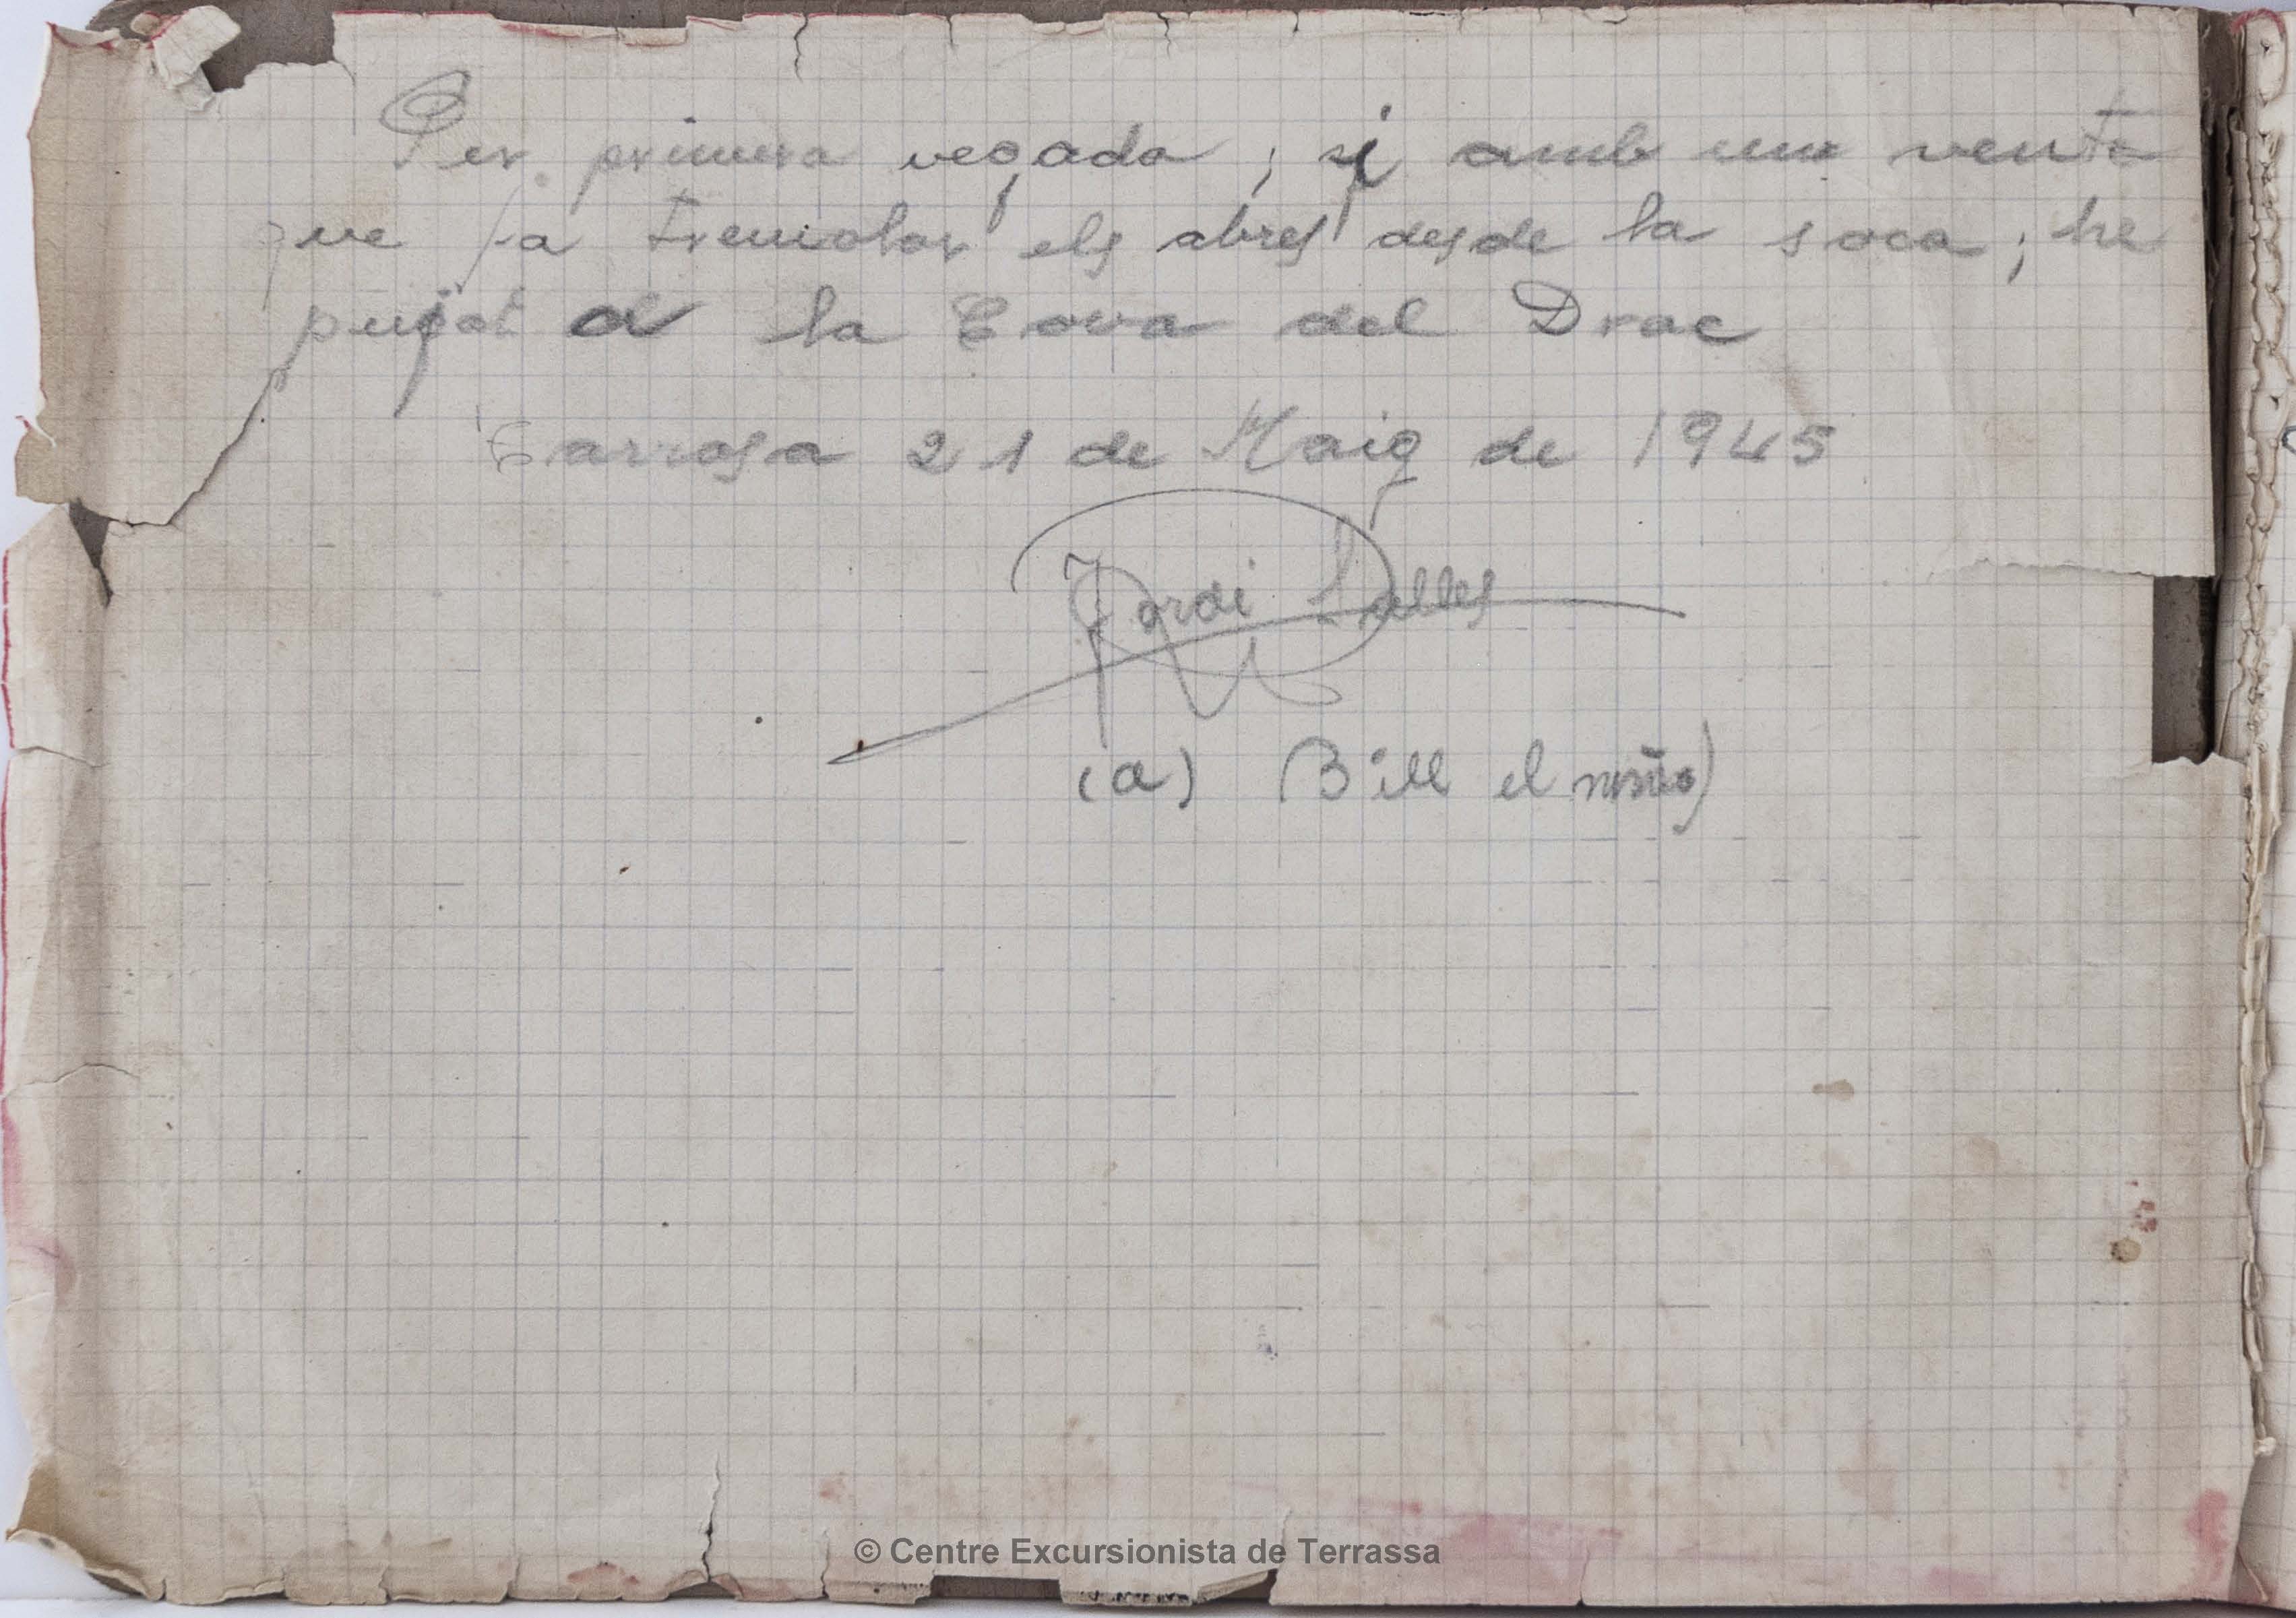 Per primera vegada ; si amb un vent
que fa tremolar els abres desde la soca ; he
pujat a la Cova del Drac
Tarrasa 21 de Maig de 1945
Jordi Salles
(a) (Bill el niño)
© Centre Excursionista de Terrassa